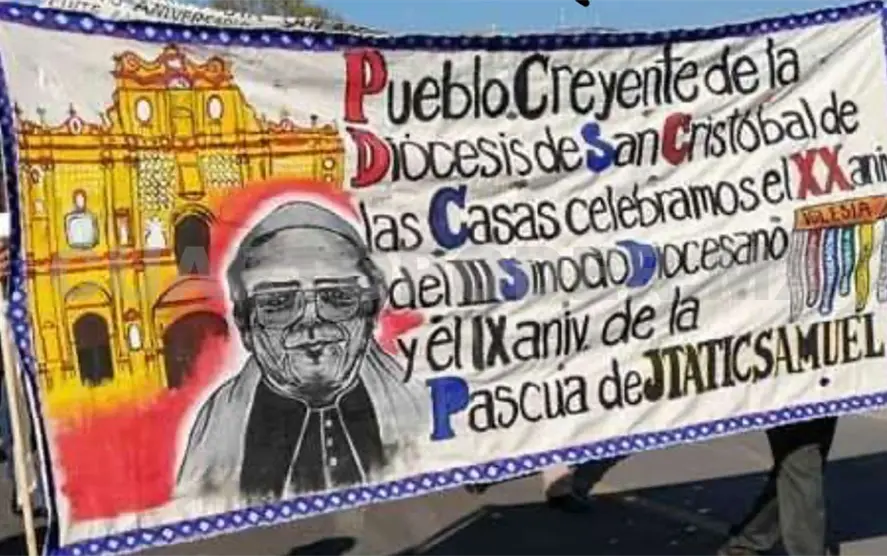 ANIVERSA
Pueblo Creyente de la
Diócesis de San Cristóbal de
las Casas celebramos el XX ani
del III Sinodo Diocesano
IGLESIA
y el IX aniv. de la
Pascua de JTATIC SAMUEL